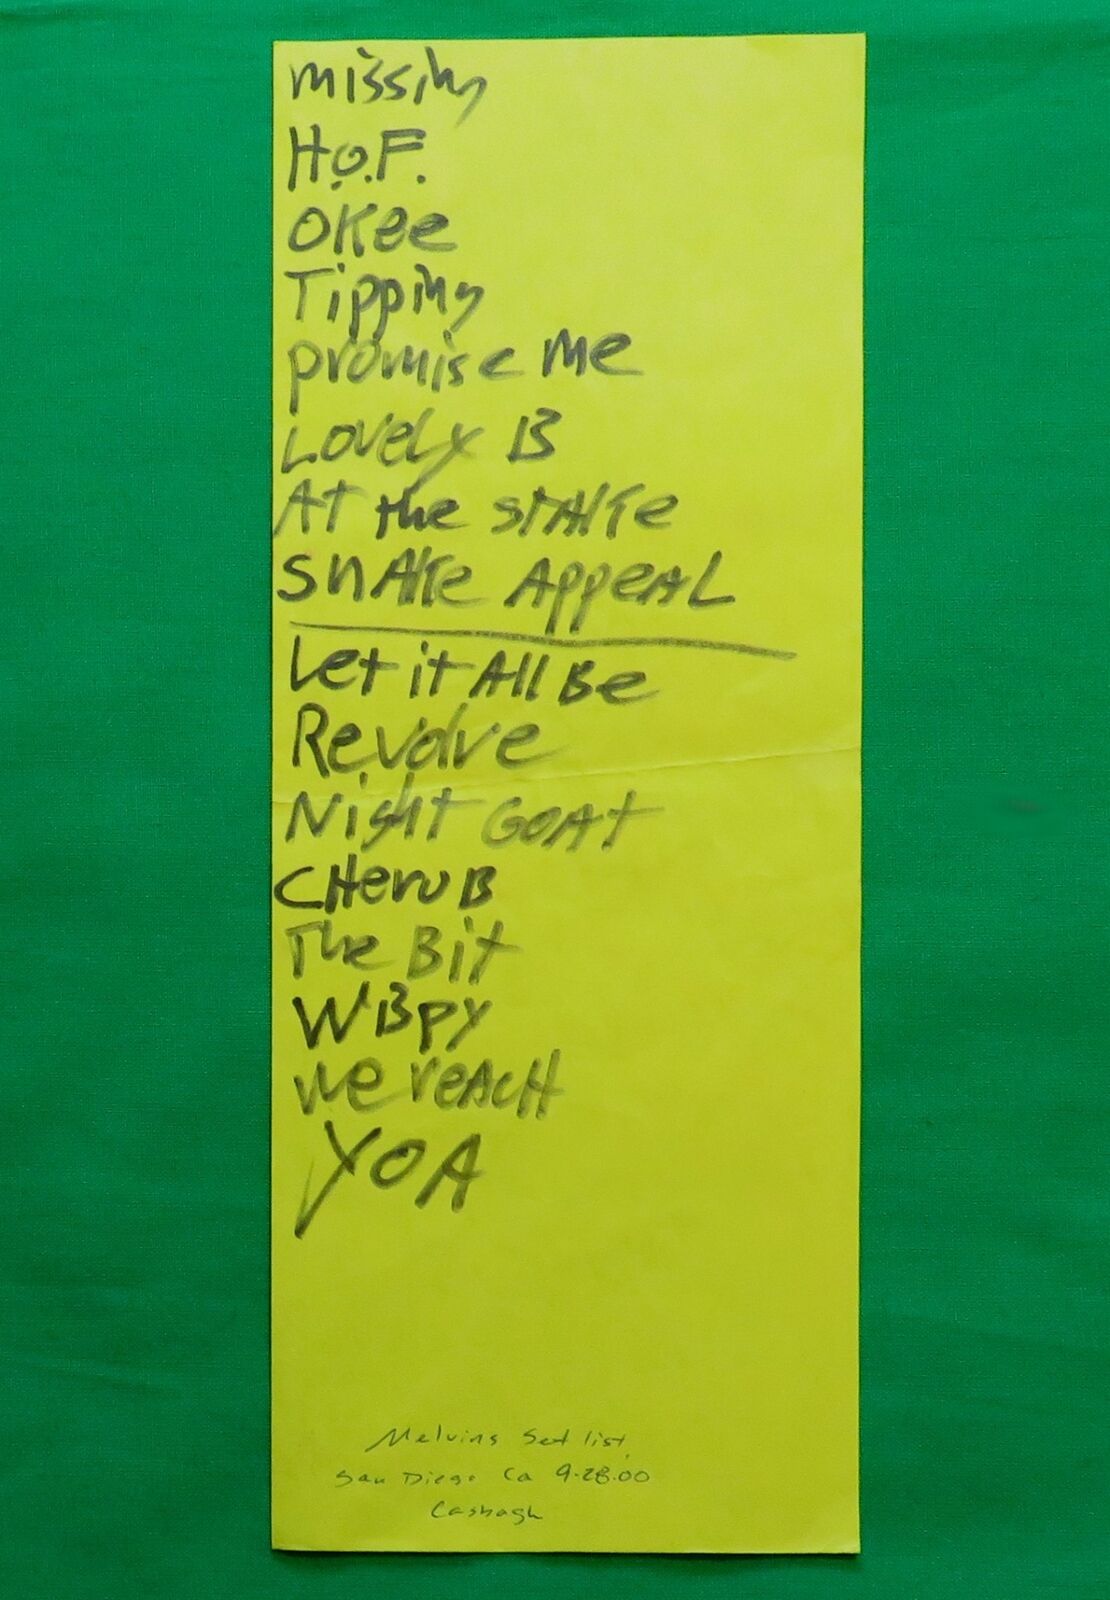 missing
H.O.F.
OKee
Tipping
promise me
Lovely B
At the stake
Snake Appeal
Let it All Be
Revolve
Night Goat
CHeruB
The Bit
WBpy
we reacH
YOA
Melvins Set list
San Diego Ca 9.28.00
Casbagh